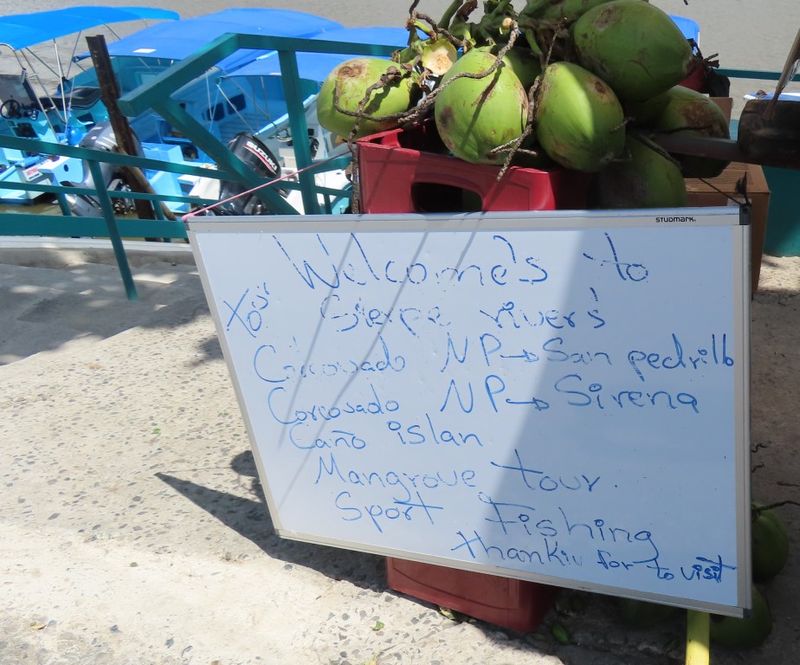 STUDMARK
Welcome's to
Sierpe river's
Corcovado NP → San pedrillo
Corcovado NP → Sirena
Caño islan
Mangrove tour.
Sport Fishing
thankiu for to visit
SUZUKI